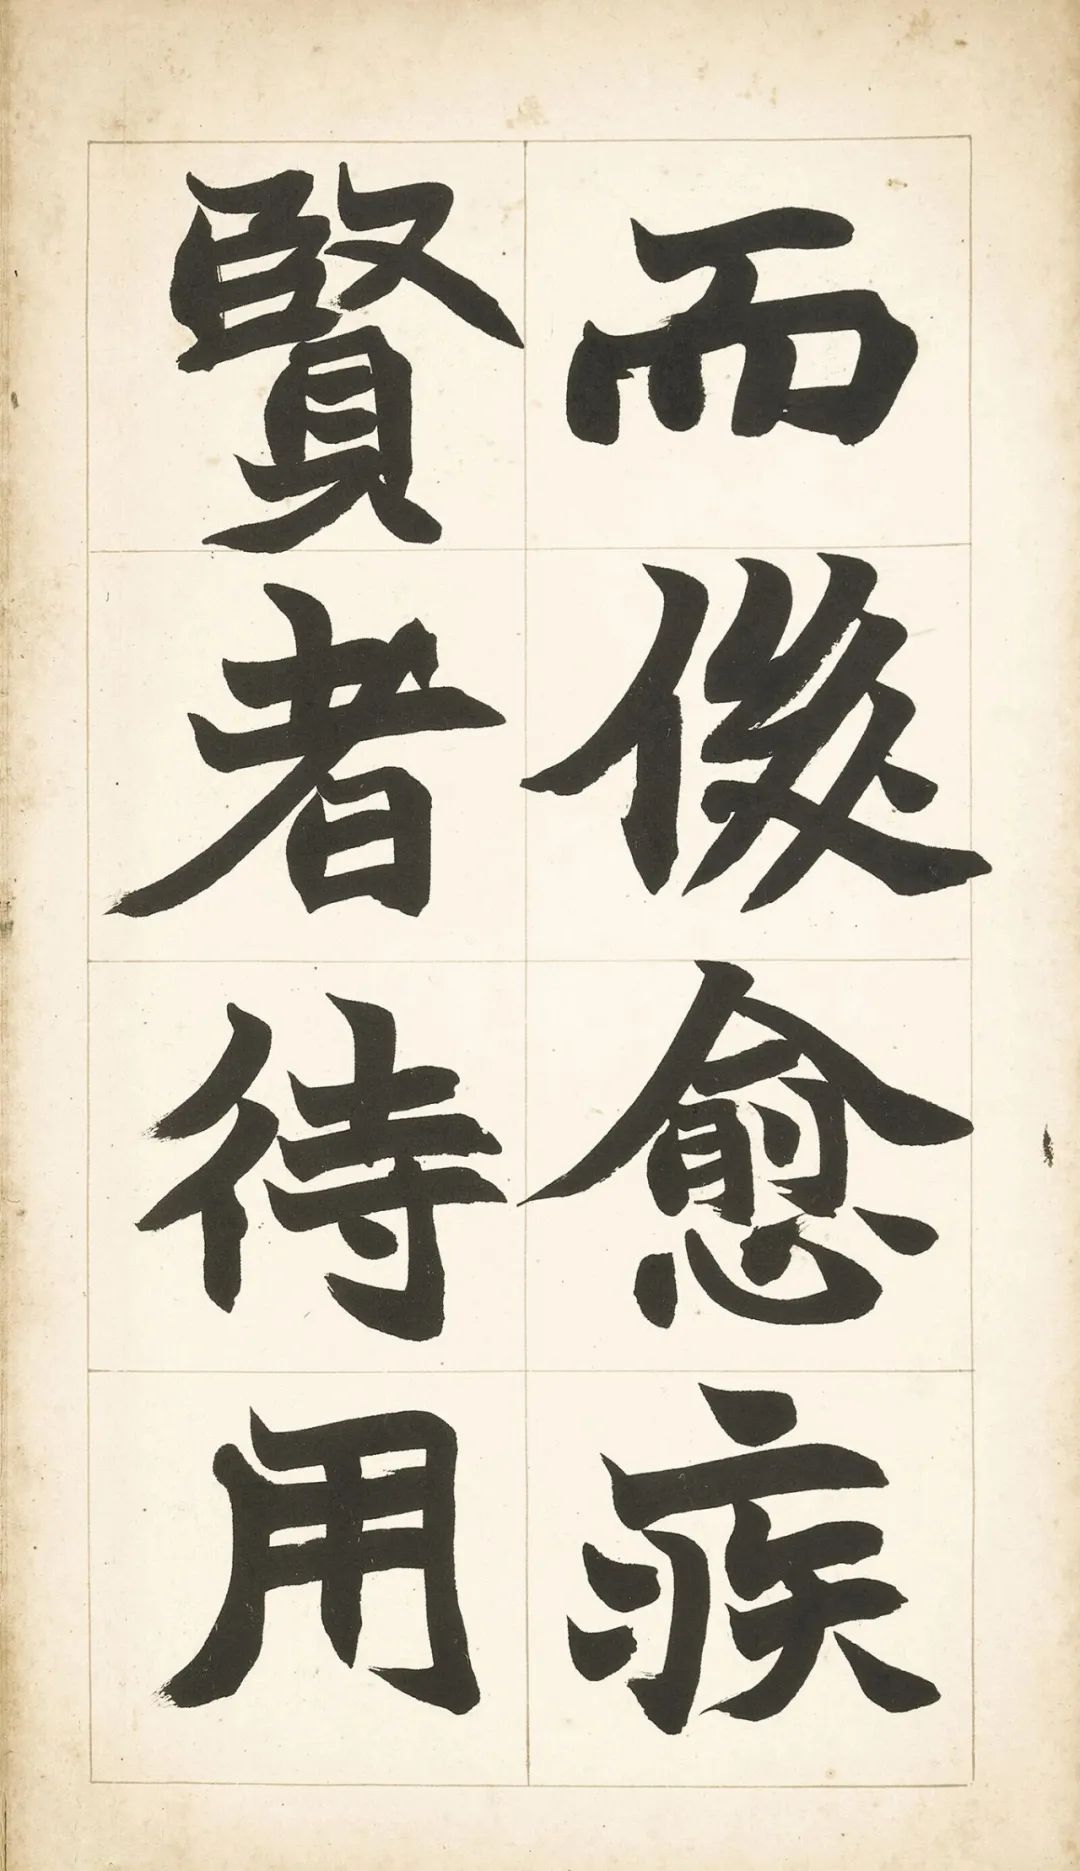 而後愈疾
賢者待用